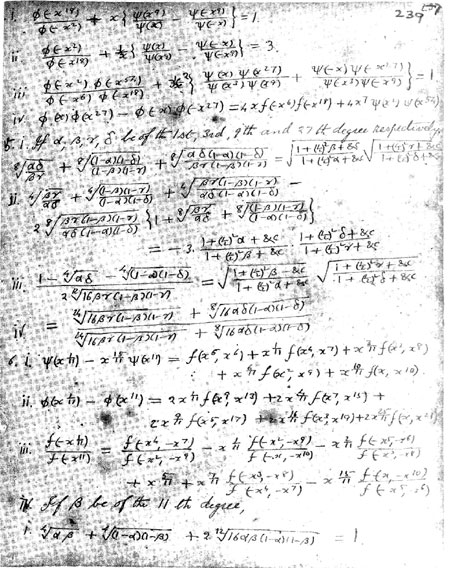 239
i. φ(-x^18)/φ(-x^2) + x{ψ(x^9)/ψ(x) - ψ(-x^9)/ψ(-x)} = 1.
ii. φ(-x^2)/φ(-x^18) + 1/x{ψ(x)/ψ(x^9) - ψ(-x)/ψ(-x^9)} = 3.
iii. φ(-x^2) φ(-x^54)/φ(-x^6) φ(-x^18) + {ψ(x) ψ(x^27)/ψ(x^3) ψ(x^9) + ψ(-x) ψ(-x^27)/ψ(-x^3) ψ(-x^9)} = 1
iv. φ(x) φ(x^27) - φ(-x) φ(-x^27) = 4x f(-x^6) f(-x^18) + 4x^7 ψ(x^2) ψ(x^54)
5. If α, β, γ, δ be of the 1st, 3rd, 9th and 27th degree respectively,
i. ⁸√(αδ/βγ) + ⁸√((1-α)(1-δ)/(1-β)(1-γ)) + ⁸√(αδ(1-α)(1-δ)/βγ(1-β)(1-γ)) = √(1+(½)²β+&c/1+(½)²α+&c) √(1+(½)²γ+&c/1+(½)²δ+&c)
ii. ⁴√(βγ/αδ) + ⁴√((1-β)(1-γ)/(1-α)(1-δ)) + ⁴√(βγ(1-β)(1-γ)/αδ(1-α)(1-δ)) -
2 ⁸√(βγ(1-β)(1-γ)/αδ(1-α)(1-δ)) {1 + ⁸√(βγ/αδ) + ⁸√((1-β)(1-γ)/(1-α)(1-δ))}
= -3. 1+(½)²α+&c/1+(½)²β+&c . 1+(½)²δ+&c/1+(½)²γ+&c
iii. 1 - ⁴√αδ - ⁴√(1-α)(1-δ) / 2 √16βγ(1-β)(1-γ) = √(1+(½)²β+&c/1+(½)²α+&c) √(1+(½)²γ+&c/1+(½)²δ+&c)
iv. = √16βγ(1-β)(1-γ) + ⁸√16αδ(1-α)(1-δ) / √16βγ(1-β)(1-γ) + ⁸√16αδ(1-α)(1-δ)
6. i. ψ(x^1/11) - x^15/11 ψ(x^11) = f(x^5, x^6) + x^1/11 f(x^4, x^7) + x^3/11 f(x^3, x^8)
+ x^6/11 f(x^2, x^9) + x^10/11 f(x, x^10).
ii. φ(x^1/11) - φ(x^11) = 2x^1/11 f(x^9, x^13) + 2x^4/11 f(x^7, x^15) +
2x^9/11 f(x^5, x^17) + 2x^16/11 f(x^3, x^19) + 2x^25/11 f(x, x^21)
iii. f(-x^1/11)/f(-x^11) = f(-x^4, -x^7)/f(-x^2, -x^9) - x^1/11 f(-x^2, -x^9)/f(-x, -x^10) - x^2/11 f(-x^5, -x^6)/f(-x^3, -x^8)
+ x^5/11 + x^7/11 f(-x^3, -x^8)/f(-x^4, -x^7) - x^15/11 f(-x, -x^10)/f(-x^5, -x^6)
If β be of the 11th degree,
i. ⁴√αβ + ⁴√(1-α)(1-β) + 2 ¹²√16αβ(1-α)(1-β) = 1.